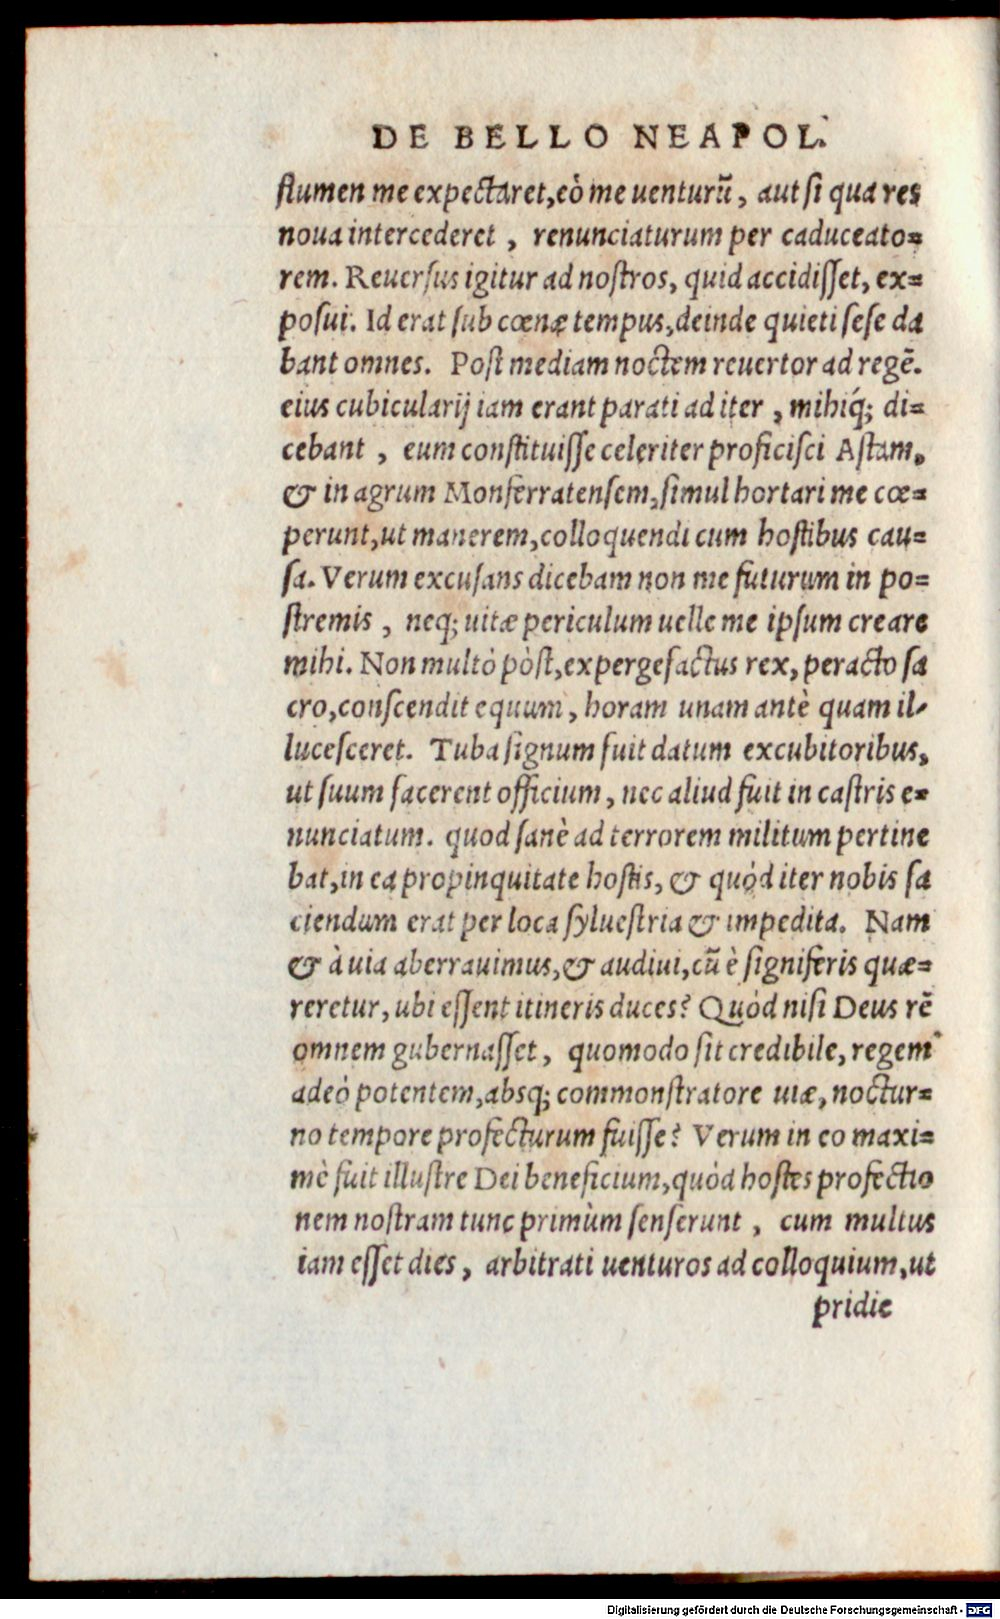 DE BELLO NEAPOL.
flumen me expectaret, eò me uenturũ, aut si qua res
noua intercederet, renunciaturum per caduceato=
rem. Reuersus igitur ad nostros, quid accidisset, ex=
posui. Id erat sub cœnæ tempus, deinde quieti sese da
bant omnes. Post mediam noctem reuertor ad regẽ.
eius cubicularij iam erant parati ad iter, mihiq́; di=
cebant, eum constituisse celeriter proficisci Astam,
& in agrum Monferratensem, simul hortari me cœ=
perunt, ut manerem, colloquendi cum hostibus cau=
sa. Verum excusans dicebam non me futurum in po=
stremis, neq; uitæ periculum uelle me ipsum creare
mihi. Non multò pòst, expergefactus rex, peracto sa
cro, conscendit equum, horam unam antè quam il=
lucesceret. Tuba signum fuit datum excubitoribus,
ut suum facerent officium, nec aliud fuit in castris e=
nunciatum. quod sanè ad terrorem militum pertine
bat, in ea propinquitate hostis, & quòd iter nobis fa
ciendum erat per loca syluestria & impedita. Nam
& à uia aberrauimus, & audiui, cũ è signiferis quæ=
reretur, ubi essent itineris duces? Quòd nisi Deus rẽ
omnem gubernasset, quomodo sit credibile, regem
adeò potentem, absq; commonstratore uiæ, noctur=
no tempore profecturum fuisse? Verum in eo maxi=
mè fuit illustre Dei beneficium, quòd hostes profectio
nem nostram tunc primùm senserunt, cum multus
iam esset dies, arbitrati uenturos ad colloquium, ut
pridie
Digitalisierung gefördert durch die Deutsche Forschungsgemeinschaft - DFG